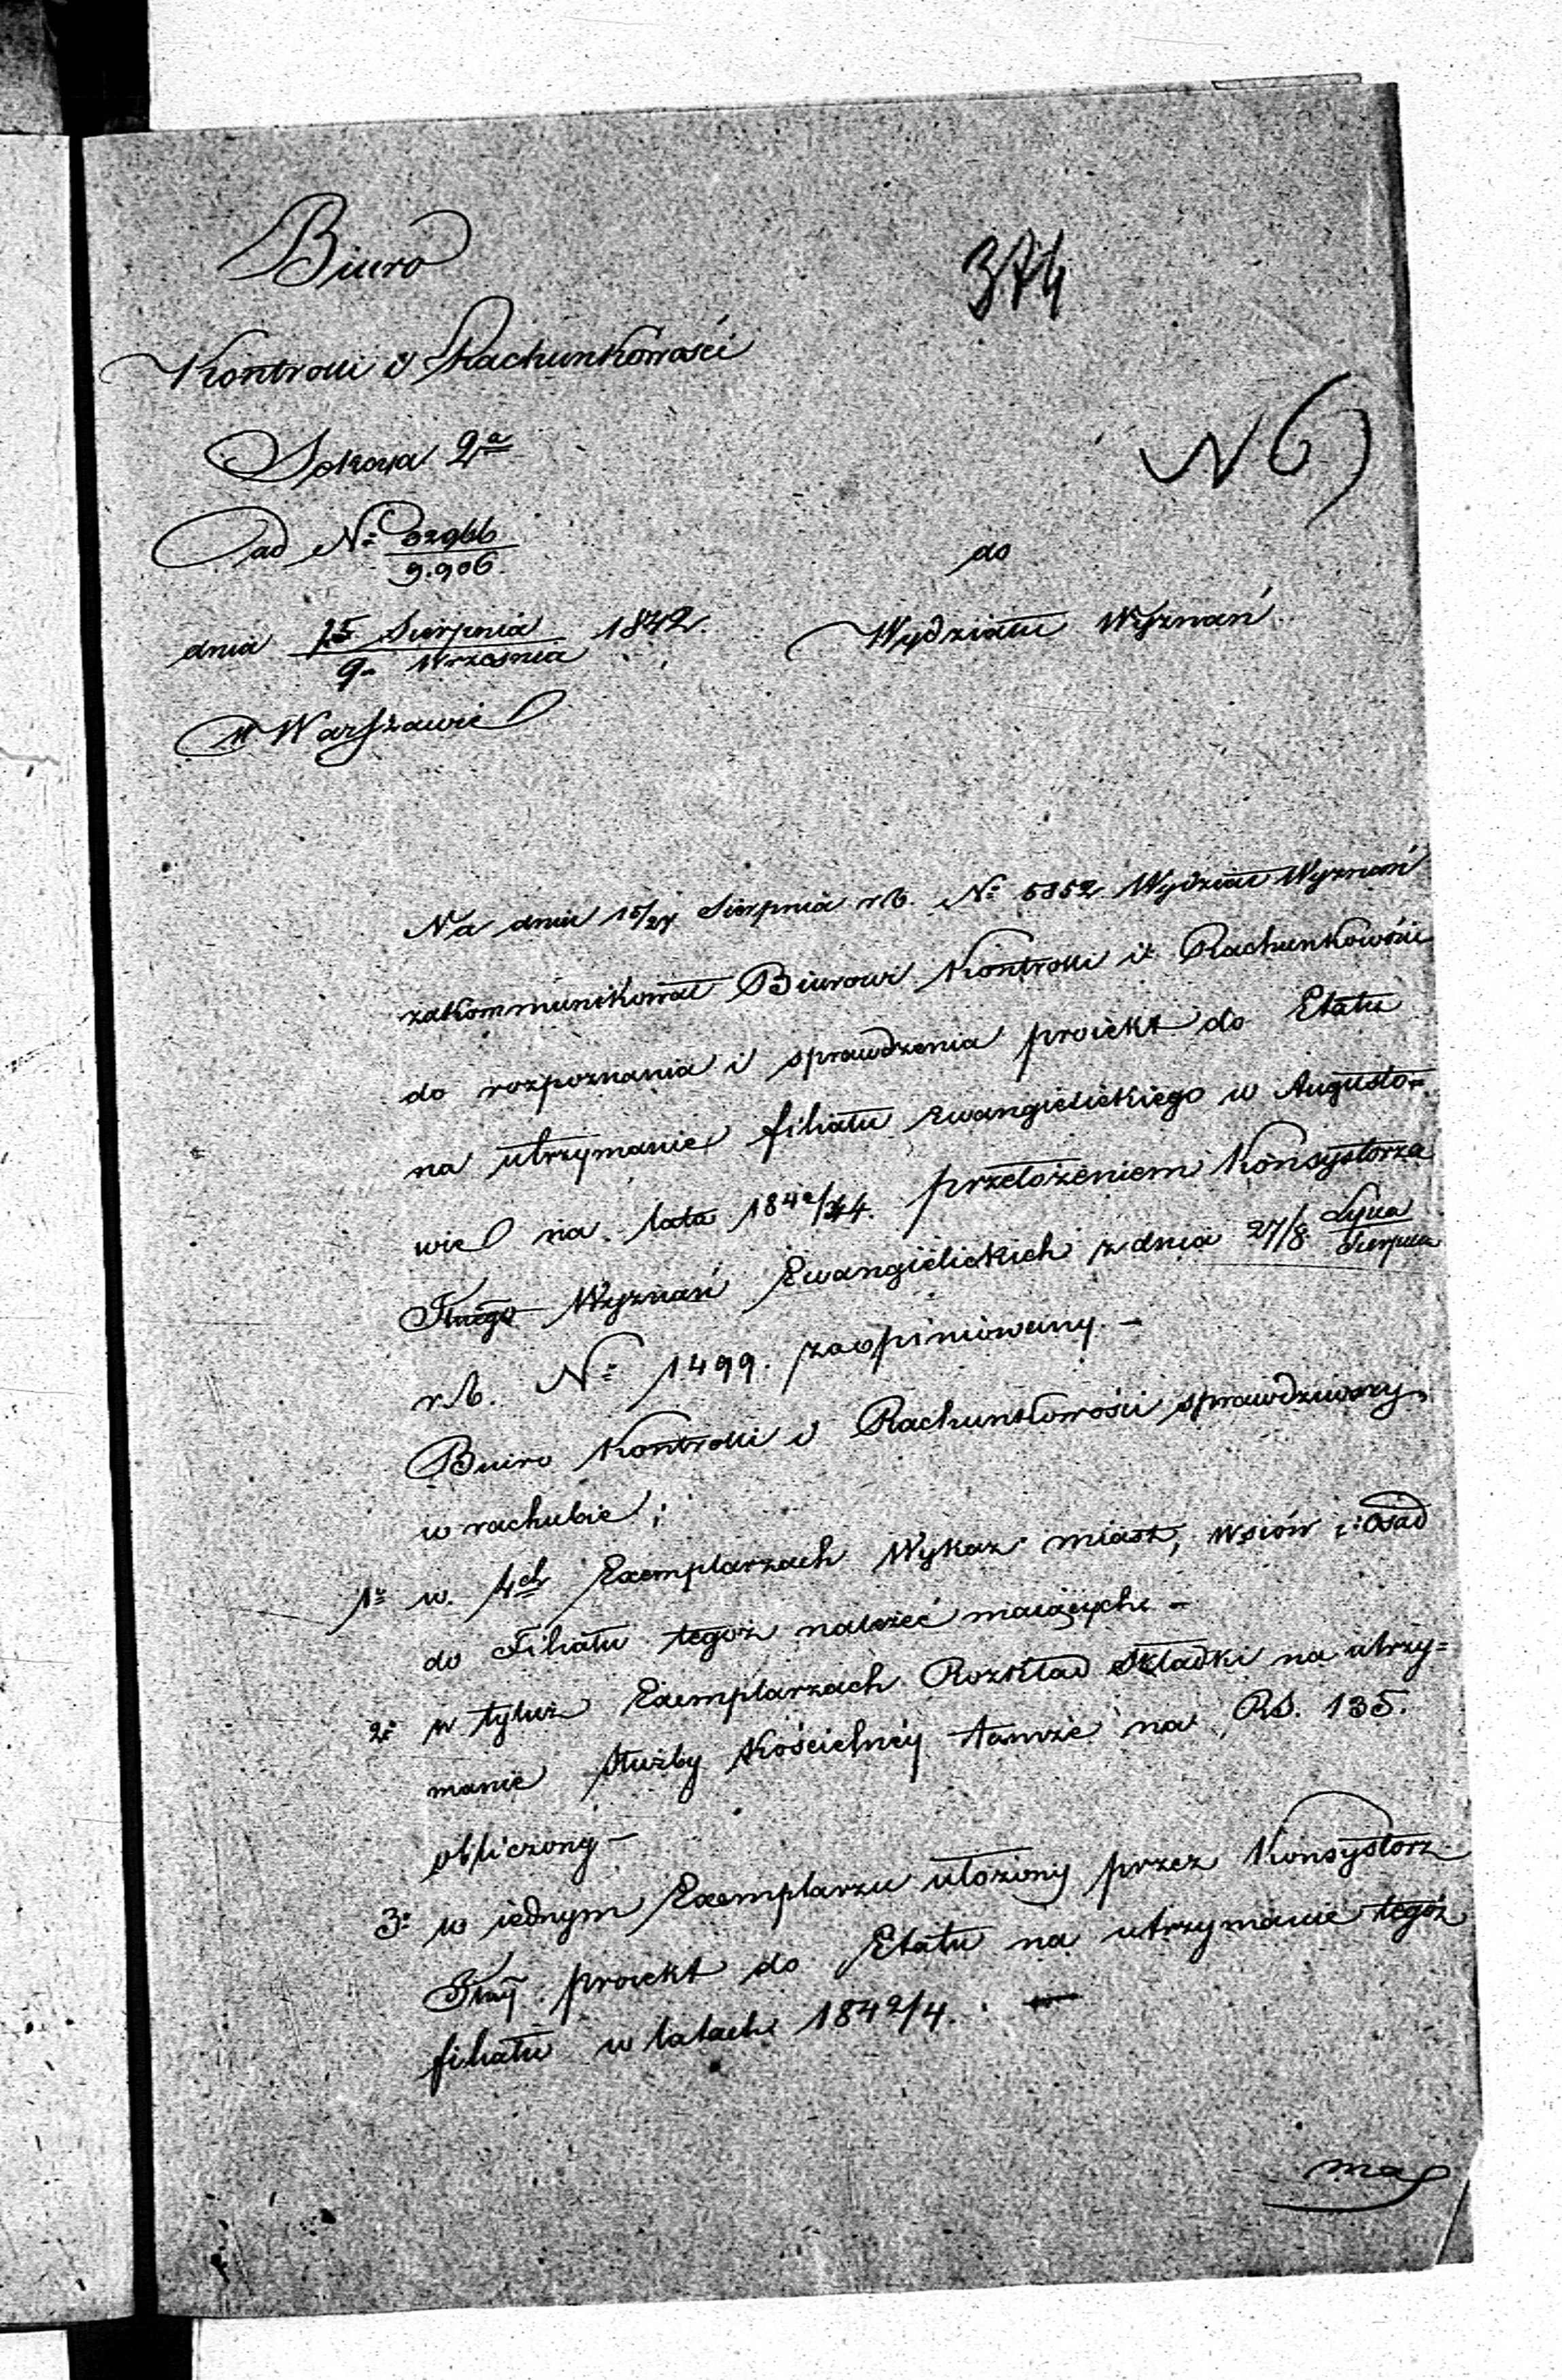 Biuro
374
Kontrolli i Rachunkowości
N 6
Sekcya 2a
ad No 32966/9.906.
do
dnia 25 Sierpnia/9 Września 1842.
Wydziału Wyznań
w Warszawie
Na dniu 15/27 Sierpnia r.b. No 5852 Wydział Wyznań
zakommunikował Biurowi Kontrolli i Rachunkowości
do rozpoznania i sprawdzenia proiekt do Etatu
na utrzymanie filiału Ewangielickiego w Augusto=
wie na lata 1842/44. przełożeniem Konsystorza
Wyznań Ewangielickich z dnia 27/8 Lipca/Sierpnia
r.b. No 1499. zaopiniowany. –
Biuro Kontrolli i Rachunkowości sprawdziwszy
w rachubie;
1o w 4ch Exemplarzach Wykaz miast, wsiów i osad
do Filiału tegoż należeć maiących. –
2o w tyluż Exemplarzach Rozkład składki na utrzy=
manie służby Kościelnéy tamże na RS. 135.
obliczony –
3o w iednym Exemplarzu ułożony przez Konsystorz
proiekt do Etatu na utrzymanie tegoż
filiału w latach 1842/4.
ma